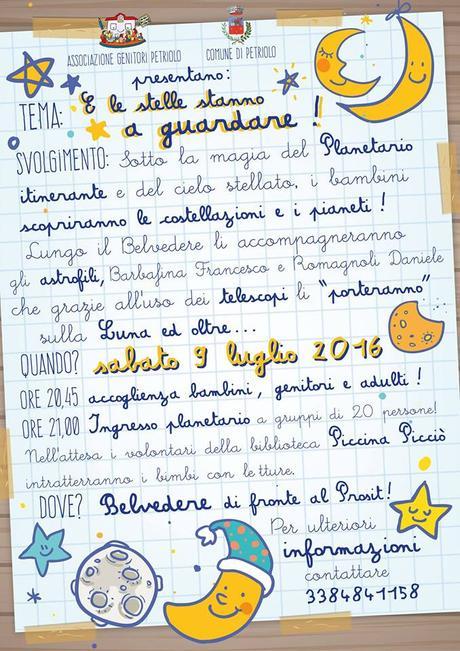 ASSOCIAZIONE GENITORI PETRIOLO COMUNE DI PETRIOLO
presentano:
TEMA: E le stelle stanno
a guardare!
SVOLGIMENTO: Sotto la magia del Planetario
itinerante e del cielo stellato, i bambini
scopriranno le costellazioni e i pianeti!
Lungo il Belvedere li accompagneranno
gli astrofili, Barbafina Francesco e Romagnoli Daniele
che grazie all'uso dei telescopi li "porteranno"
sulla Luna ed oltre...
QUANDO? sabato 9 luglio 2016
ORE 20,45 accoglienza bambini, genitori e adulti!
ORE 21,00 Ingresso planetario a gruppi di 20 persone!
Nell'attesa i volontari della biblioteca Piccina Picciò
intratterranno i bimbi con letture.
DOVE? Belvedere di fronte al Prosit!
Per ulteriori
informazioni
contattare
3384841158